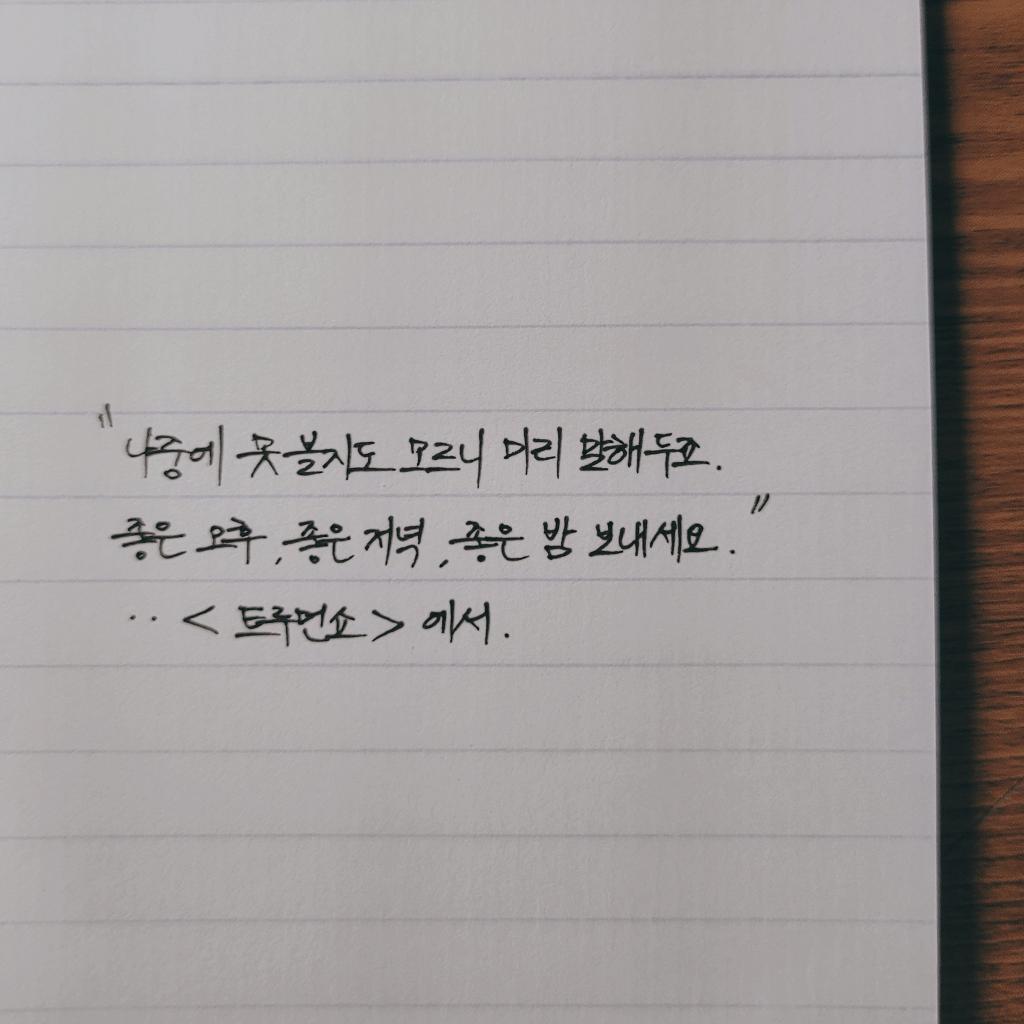 "나중에 못 볼지도 모르니 미리 말해두죠.
좋은 오후, 좋은 저녁, 좋은 밤 보내세요."
·· <트루먼쇼> 에서.